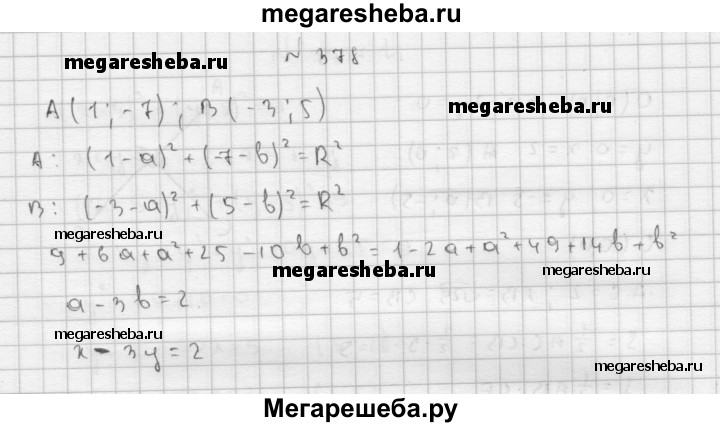 megaresheba.ru
№ 378
megaresheba.ru
A(1; -7); B(-3; 5)
megaresheba.ru
A: (1-a)² + (-7-b)² = R²
B: (-3-a)² + (5-b)² = R²
megaresheba.ru
9 + 6a + a² + 25 - 10b + b² = 1 - 2a + a² + 49 + 14b + b²
megaresheba.ru
a - 3b = 2
megaresheba.ru
x - 3y = 2
megaresheba.ru
Мегарешеба.ру